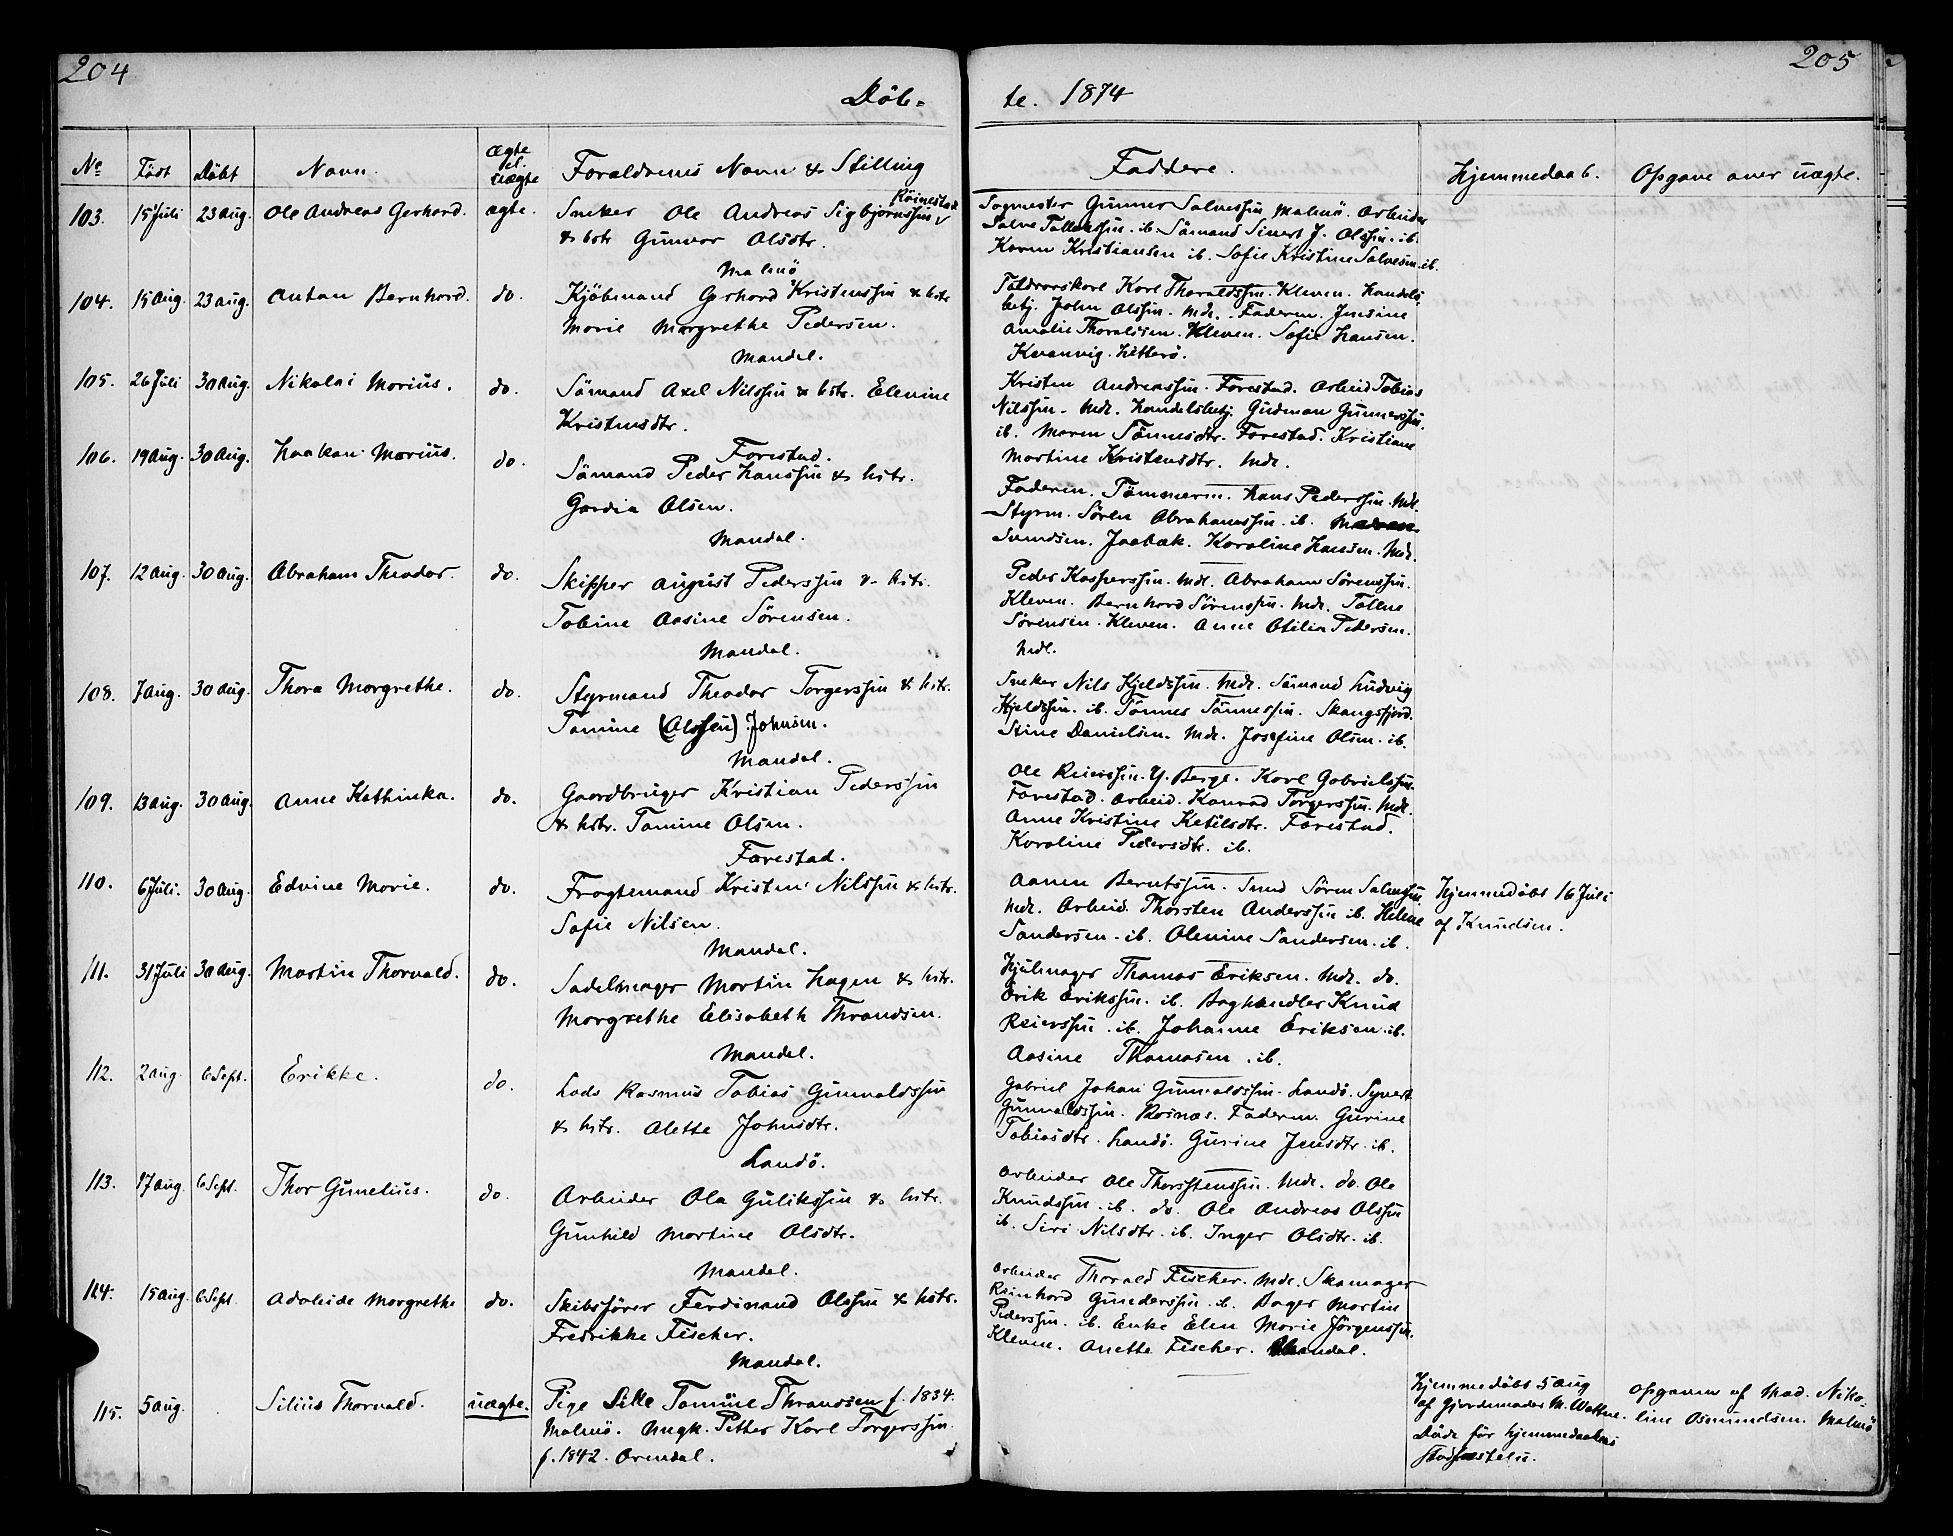 204
205
Døb-
te. 1874
No
Født
Døbt
Navn.
ægte
el.
uægte
Forældrenes Navn & Stilling
Faddere.
Hjemmedaab.
Opgave over uægte.
103. 15 Juli 23 Aug. Ole Andreas Gerhard. ægte.
Røinestad
Sneker Ole Andreas Sigbjørnssen
& hstr Gunvor Olsdtr.
Malmö
Sogmester Gunner Salvessen Malmö. Arbeider
Salve Tallaksen. ib. Sömand Sivert J. Olssen. ib.
Karen Kristiansen ib. Sofie Kristine Salvesen. ib.
104. 15 Aug. 23 Aug. Anton Bernhard. do.
Kjöbmand Gerhard Kristenssen & hstr
Marie Margrethe Pedersen.
Mandal.
Toldroerskarl Karl Tharaldssen. Kleven. Handels-
betj. John Olssen. Mdl. Faderen. Jensine
Amalie Tharaldsen. Kleven. Sofie Hansen.
Kvanvig. Hitterö.
105. 26 Juli 30 Aug. Nikolai Marius. do.
Sömand Axel Nilssen & hstr. Elenine
Kristensdtr.
Farestad.
Kristen Andreassen. Farestad. Arbeid Tobias
Nilssen. Mdl. Handelsbetj. Gudman Gunnerssen.
ib. Maren Tönnesdtr. Farestad. Kristiane
Martine Kristensdtr. Mdl.
106. 19 Aug. 30 Aug. Haakon Marius. do.
Sömand Peder Hanssen & hstr.
Gardia Olsen.
Mandal.
Faderen. Tömmerm. Hans Pederssen. Mdl.
Styrm. Sören Abrahamssen. ib.
Svendsen. Jaabæk. Karoline Hansen. Mdl.
107. 12 Aug. 30 Aug. Abraham Theodor. do.
Skipper August Pederssen & hstr.
Tobine Aasine Sörensen.
Mandal.
Peder Kasperssen. Mdl. Abraham Sörenssen.
Kleven. Bernhard Sörenssen. Mdl. Tolline
Sörensen. Kleven. Anne Otilia Pedersen.
Mdl.
108. 7 Aug. 30 Aug. Thora Margrethe. do.
Styrmand Theodor Torgerssen & hstr.
Tomine (Olssen) Johnsen.
Mandal.
Sneker Nils Kjeldssen. Mdl. Sömand Ludvig
Kjeldssen. ib. Tönnes Tönnessen. Skougsfjord.
Stine Danielsen. Mdl. Josefine Olsen. ib.
109. 13 Aug. 30 Aug. Anne Kathinka. do.
Gaardbruger Kristian Pederssen
& hstr. Tomine Olsen.
Farestad.
Ole Reierssen. Y. Berge. Karl Gabrielssen.
Farestad. Arbeid. Konrad Torgerssen. Mdl.
Anne Kristine Ketilsdtr. Farestad.
Karoline Pedersdtr. ib.
110. 6 Juli. 30 Aug. Edvine Marie. do.
Fragtemand Kristen Nilssen & hstr.
Sofie Nilsen.
Mandal.
Aanen Berntssen. Sund Sören Salvessen.
Mdl. Arbeid. Thorsten Anderssen ib. Helene
Sandersen. ib. Olenine Sandersen. ib.
Hjemmedøbt 16 Juli
af Knudsen.
111. 31 Juli 30 Aug. Martin Thorvald. do.
Sadelmager Martin Hagen & hstr.
Margrethe Elisabeth Throndsen.
Mandal.
Hjulmager Thomas Eriksen. Mdl. do.
Erik Erikssen. ib. Boghandler Knud
Reierssen. ib. Johanne Eriksen. ib.
Aasine Thomasen. ib.
112. 2 Aug. 6 Sept. Erikke. do.
Lods Rasmus Tobias Gunvaldssen
& hstr. Alette Johnsdtr.
Landö.
Gabriel Johan Gunvaldssen. Landö. Syvert
Gunvaldssen. Rosnæs. Faderen. Gurine
Tobiasdtr. Landö. Gurine Jensdtr. ib.
113. 17 Aug. 6 Sept. Thor Gunelius. do.
Arbeider Ola Gulikssen & hstr.
Gunhild Martine Olsdtr.
Mandal.
Arbeider Ole Thorstenssen. Mdl. do. Ole
Knudssen. ib. do. Ole Andreas Olssen
ib. Siri Nilsdtr. ib. Inger Olsdtr. ib.
114. 15 Aug. 6 Sept. Adoleide Margrethe do.
Skibsfører Ferdinand Olssen & hstr.
Fredrikke Fischer.
Mandal.
Arbeider Thorvald Fischer. Mdl. Skomager
Reinhard Gunderssen. ib. Bager Martin
Pederssen. ib. Enke Elen Marie Jörgenssen.
Kleven. Anette Fischer. Mandal.
115. 5 Aug. Silius Thorvald. uægte.
Pige Sille Tomine Throndsen f. 1834.
Malmö. Ungk. Petter Karl Torgerssen.
f. 1842. Arendal.
Hjemmedøbt 5 Aug
af Gjordemoder M. Wattne.
Døde før Hjemmedaabens
Stadfæstelse.
Opgaven af Mad. Niko-
line Osmundsen. Malmö